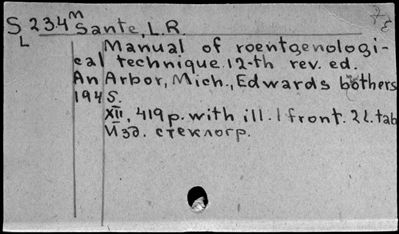 S 234 m Sante, L.R.
L Manual of roentgenologi-
cal technique. 12-th rev. ed.
An Arbor, Mich., Edwards bothers
1945.
XII, 419 p. with ill. 1 front. 2 l. tab
Изд. стеклогр.